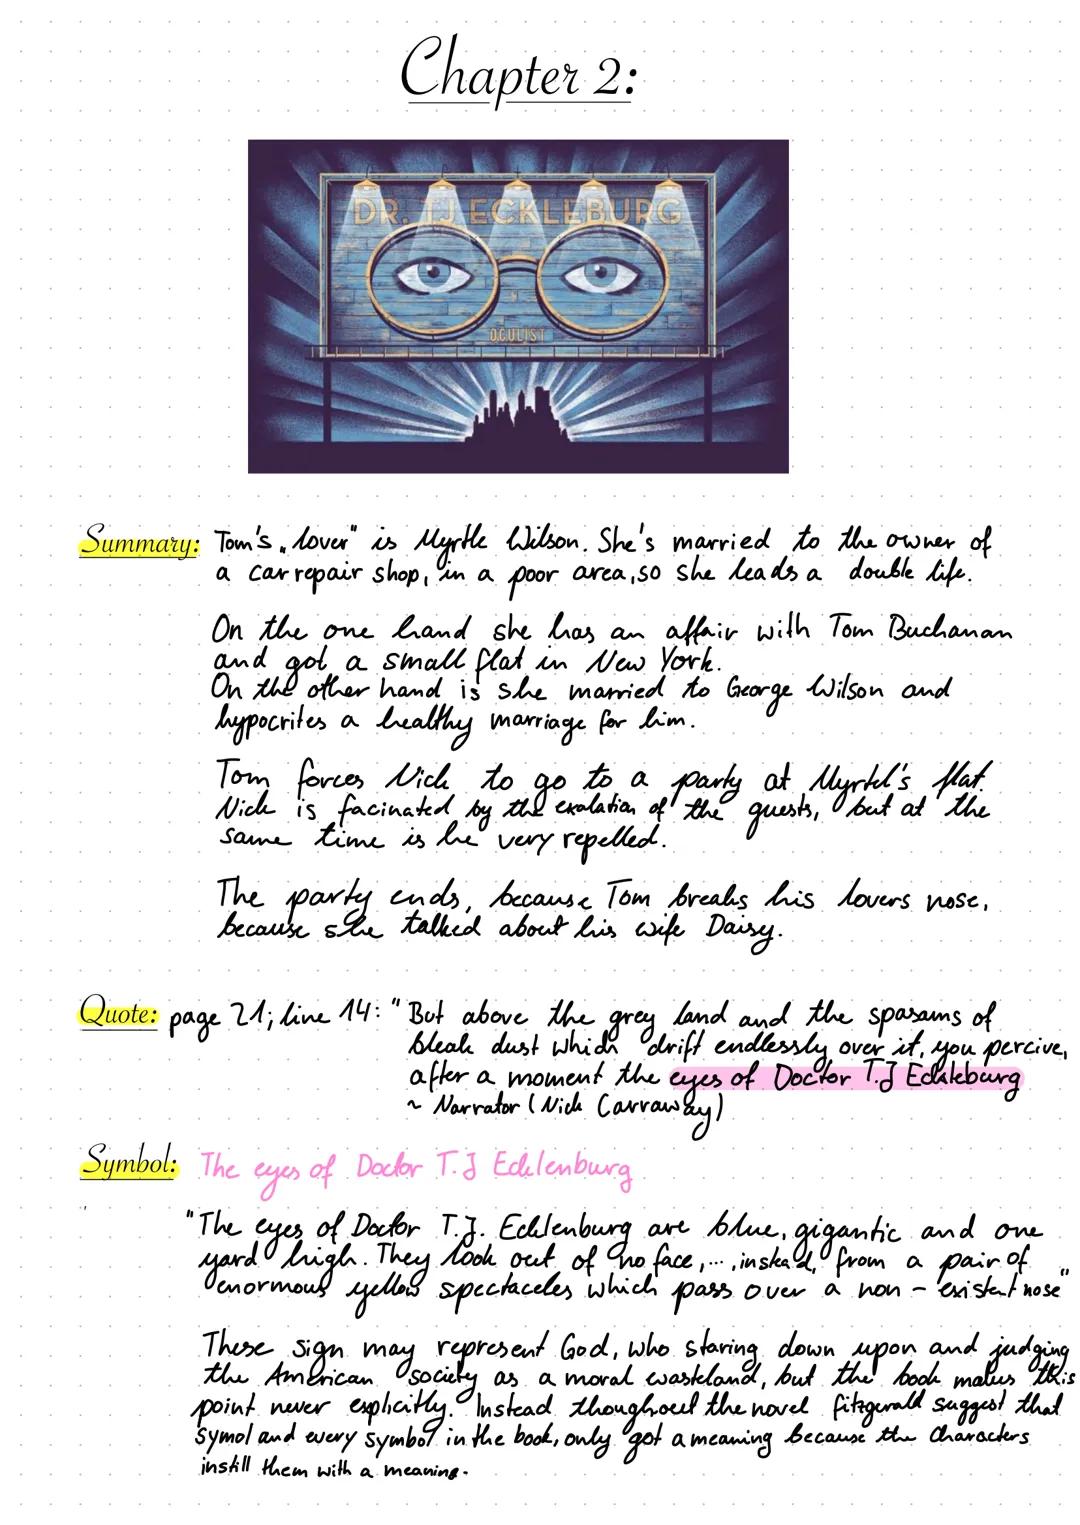 Chapter 2:
DR. TJ ECKLEBURG
OCULIST
Summary: Tom's „lover" is Myrtle Wilson. She's married to the owner of
a car repair shop, in a poor area, so she leads a double life.
On the one hand she has an affair with Tom Buchanan
and got a small flat in New York.
On the other hand is she married to George Wilson and
hypocrites a healthy marriage for him.
Tom forces Nick to go to a party at Myrtel's flat.
Nick is facinated by the exalation of the guests, but at the
same time is he very repelled.
The party ends, because Tom breaks his lovers nose,
because she talked about his wife Daisy.
Quote: page 21; line 14: "But above the grey land and the spasams of
bleak dust which drift endlessly over it, you percive,
after a moment the eyes of Doctor T.J Eckleburg
~ Narrator (Nick Carraway)
Symbol: The eyes of Doctor T.J Ecklenburg
"The eyes of Doctor T.J. Ecklenburg are blue, gigantic and one
yard high. They look out of no face, ..., instead, from a pair of
enormous yellow spectaceles which pass over a non - existent nose"
These sign may represent God, who staring down upon and judging
the American society as a moral wasteland, but the book makes this
point never explicitly. Instead thoughout the novel fitzgerald suggest that
symol and every symbol in the book, only got a meaning because the characters
instill them with a meaning.